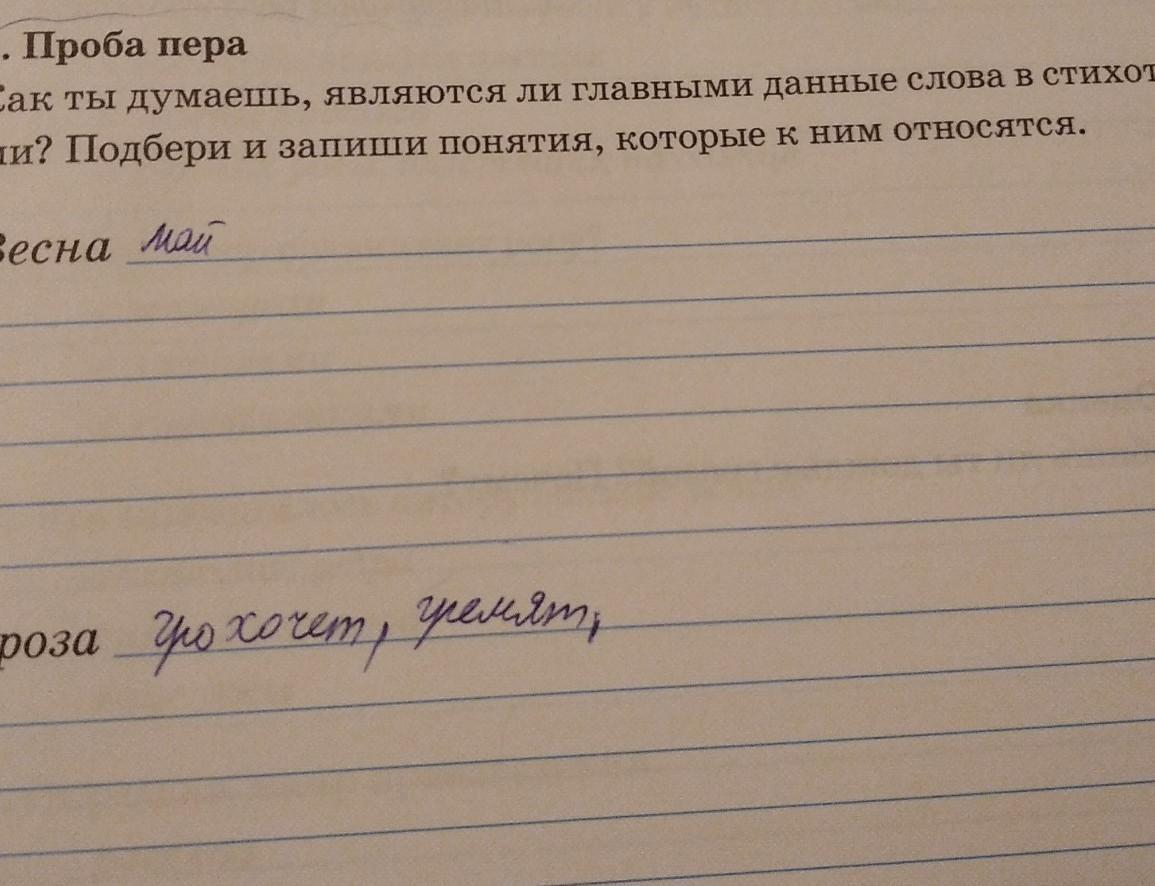 . Проба пера
Как ты думаешь, являются ли главными данные слова в стихот
ии? Подбери и запиши понятия, которые к ним относятся.
Весна май
роза грохочет, гремят,